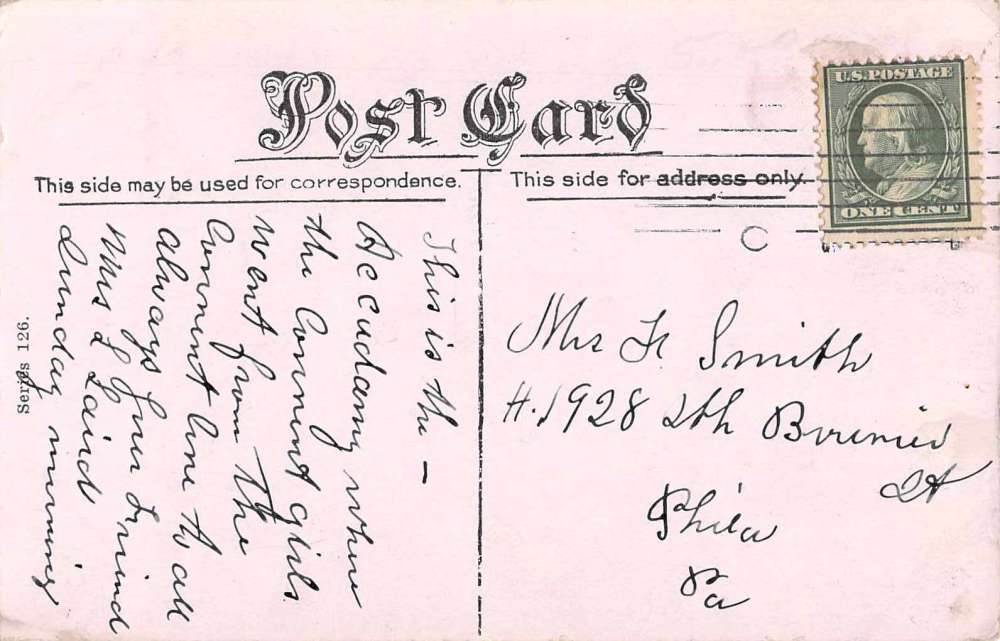 Post Card
This side may be used for correspondence.
This side for address only.
U.S. POSTAGE
ONE CENT
This is the —
Accudamy where
the Convent girls
went from the
Convent love to all
always your Frind
Mrs L Laird
Sunday morning
Series 126.
Mrs Smith
1928 Sth Bouvier
St
Phila
Pa
C